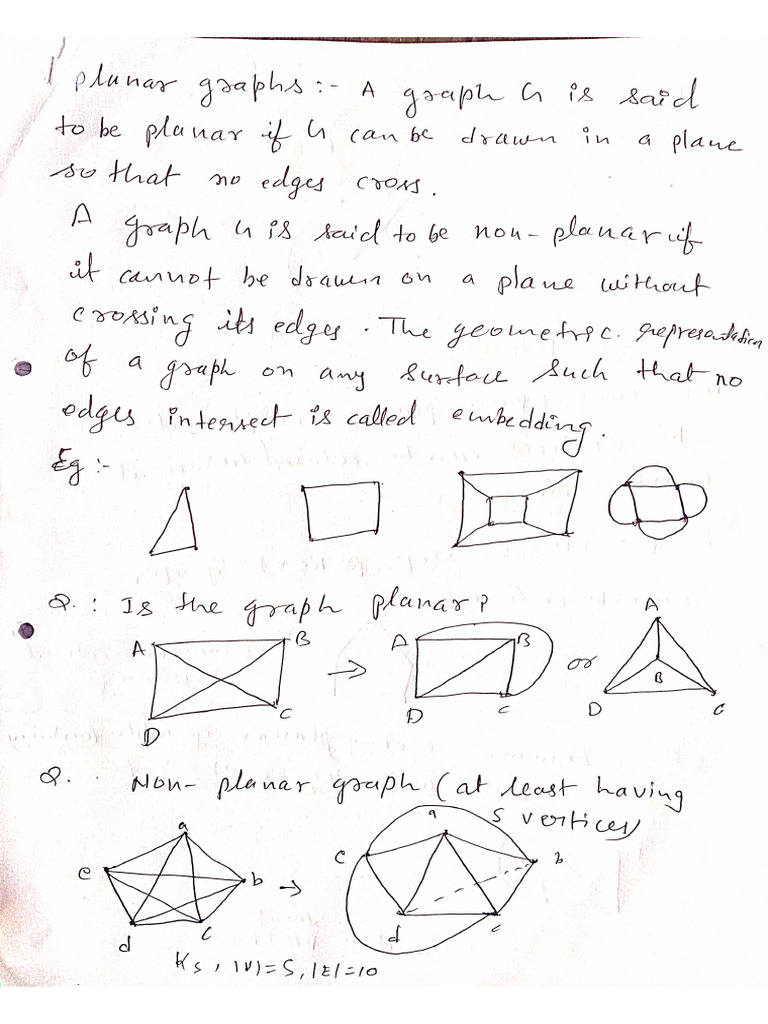 planar graphs :- A graph G is said
to be planar if G can be drawn in a plane
so that no edges cross.
A graph G is said to be non-planar if
it cannot be drawn on a plane without
crossing its edges. The geometric representation
of a graph on any surface such that no
edges intersect is called embedding.
Eg :-
Q. : Is the graph planar?
A B C D
→
A B C D
or
A B C D
Q. Non-planar graph (at least having
5 vertices)
a b c d e
→
a b c d e
K5, |V|=5, |E|=10